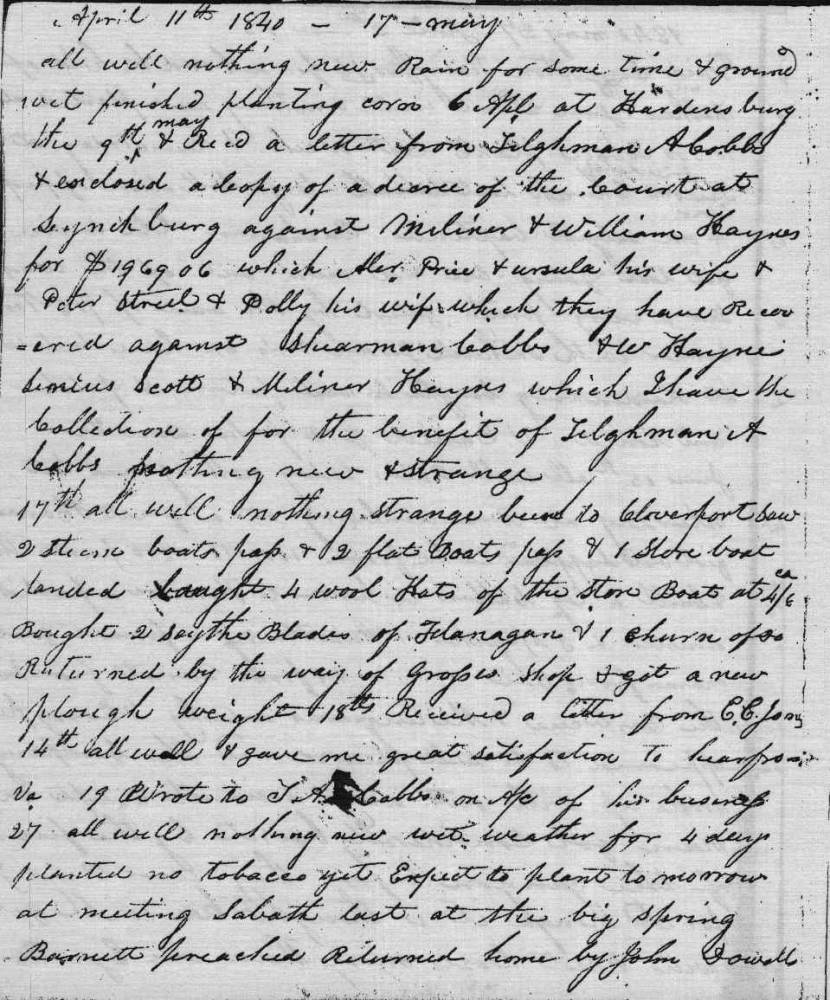 April 11th 1840 - 17 - may
all well nothing new Rain for some time & ground
wet finished planting corn 6 Apl at Hardensburg
the 9th may & Recd a letter from Tilghman A Cobbs
& enclosed a Copy of a decree of the Court at
Lynchburg against Meliner & William Haynes
for $1969 06 which Alex. Price & ursula his wife &
Peter Street & Polly his wife which they have Recov
=ered against Shearman Cobbs & W Haynes
Scott & Meliner Haynes which I have the
Collection of for the benefit of Tilghman A
Cobbs nothing new & strange
17th all well nothing strange been to Cloverport Saw
2 steam boats pass & 2 flat boats pass & 1 Store boat
landed bought 4 wool Hats of the store Boat at 4/6 ea
Bought 2 scythe Blades of Flanagan & 1 churn of do
Returned by the way of Grosses shop & got a new
plough weight 18 lbs Received a letter from C.C. Jones
14th all well & gave me great satisfaction to hear from
Va 19 Wrote to T. A. Cobbs on A/c of his business
27 all well nothing new wet weather for 4 days
planted no tobacco yet Expect to plant to morrow
at meeting Sabath last at the big spring
Barnett preached Returned home by John Dowell